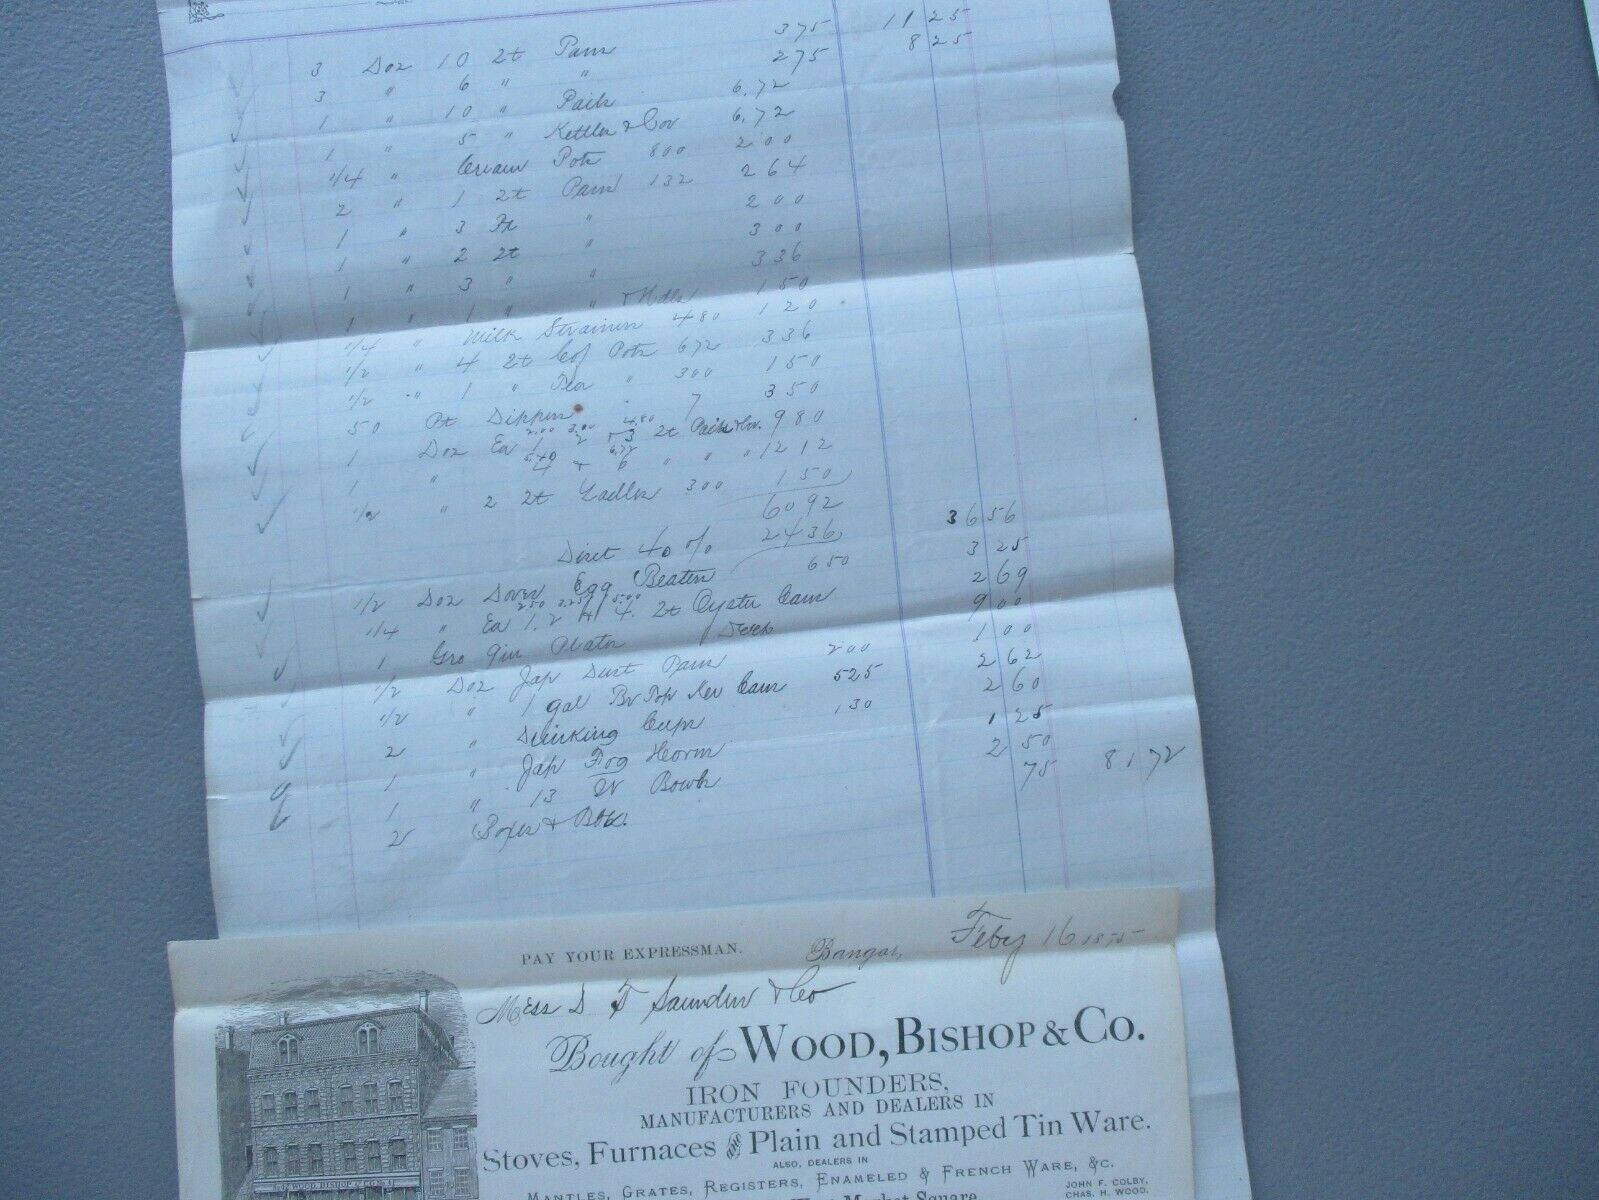 3 Doz 10 2t Pans 375 11 25
3 " 6 " " 275 8 25
1 " 10 " Pails 6,72
1 " 5 " Kettles & Cov 6,72
1/4 " Cream Pots 800 200
2 " 1 2t Pans 132 264
1 " 3 Pt " 200
1 " 2 2t " 300
1 " 3 " " 336
1 " 1 " " & Hdls 150
1/4 " Milk Strainers 480 120
1/2 " 4 2t Cof Pots 672 336
1/2 " 1 " Tea " 300 150
50 Pt Dippers 7 350
1 Doz Ea 1 2 & 3 2t Pails & Cov. 980
2.00 3.00 4.80
1 " 4 & 6 " " " 1212
5.40 6.72
1/2 " 2 2t Ladles 300 150
6092
Disct 40 % 2436 36 56
1/2 Doz Dover Egg Beaters 650 3 25
1/4 " Ea 1, 2 & 4 2t Oyster Cans 2 69
2.50 3.25 5.00
1 Gro 9in Plates Deep 9 00
1/2 Doz Jap Dust Pans 200 1 00
1/2 " 1 gal Br Top Ker Cans 525 2 62
2 " Drinking Cups 130 2 60
1 " Jap Fog Horns 1 25
1 " 13 Qt Bowls 2 50
2 Boxes & Bbls. 75 81 72
PAY YOUR EXPRESSMAN.
Bangor, Feby 16 1875
Mess D T Saunders & Co
Bought of WOOD, BISHOP & CO.
IRON FOUNDERS,
MANUFACTURERS AND DEALERS IN
Stoves, Furnaces and Plain and Stamped Tin Ware.
ALSO, DEALERS IN
MANTLES, GRATES, REGISTERS, ENAMELED & FRENCH WARE, &C.
JOHN F. COLBY,
CHAS. H. WOOD.
Market Square
WOOD BISHOP & CO.